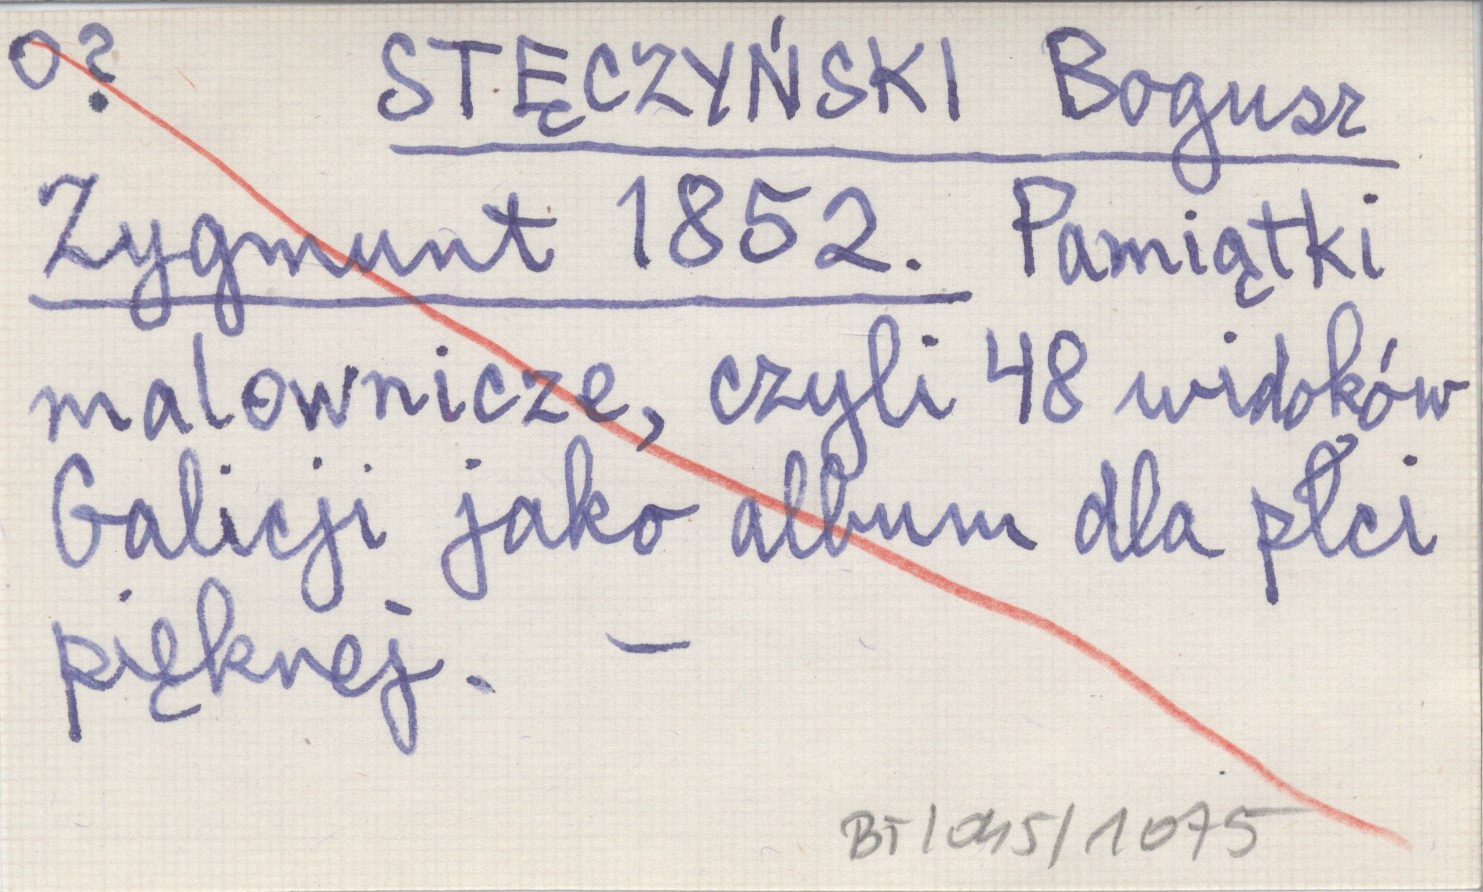 o? STĘCZYŃSKI Bogusz
Zygmunt 1852. Pamiątki
malownicze, czyli 48 widoków
Galicji jako album dla płci
pięknej. —
BT/045/1075